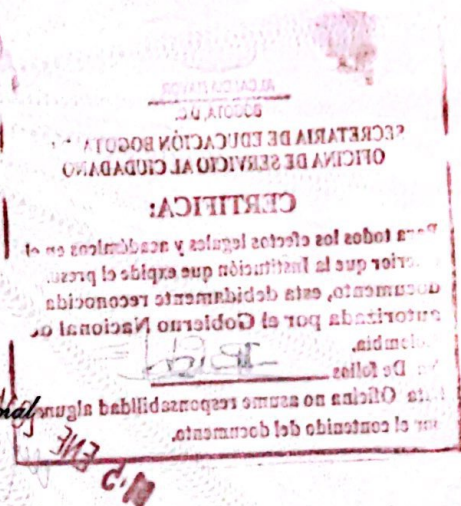 ALCALDIA MAYOR
BOGOTA, D.C.
SECRETARIA DE EDUCACIÓN BOGOTA
OFICINA DE SERVICIO AL CIUDADANO
CERTIFICA:
Para todos los efectos legales y academicos en el
erior que la Institución que expide el
documento, esta debidamente reconocida
autorizada por el Gobierno Nacional
olombia.
De folios
Oficina no asume responsabilidad alguna
por el contenido del documento.
ENE